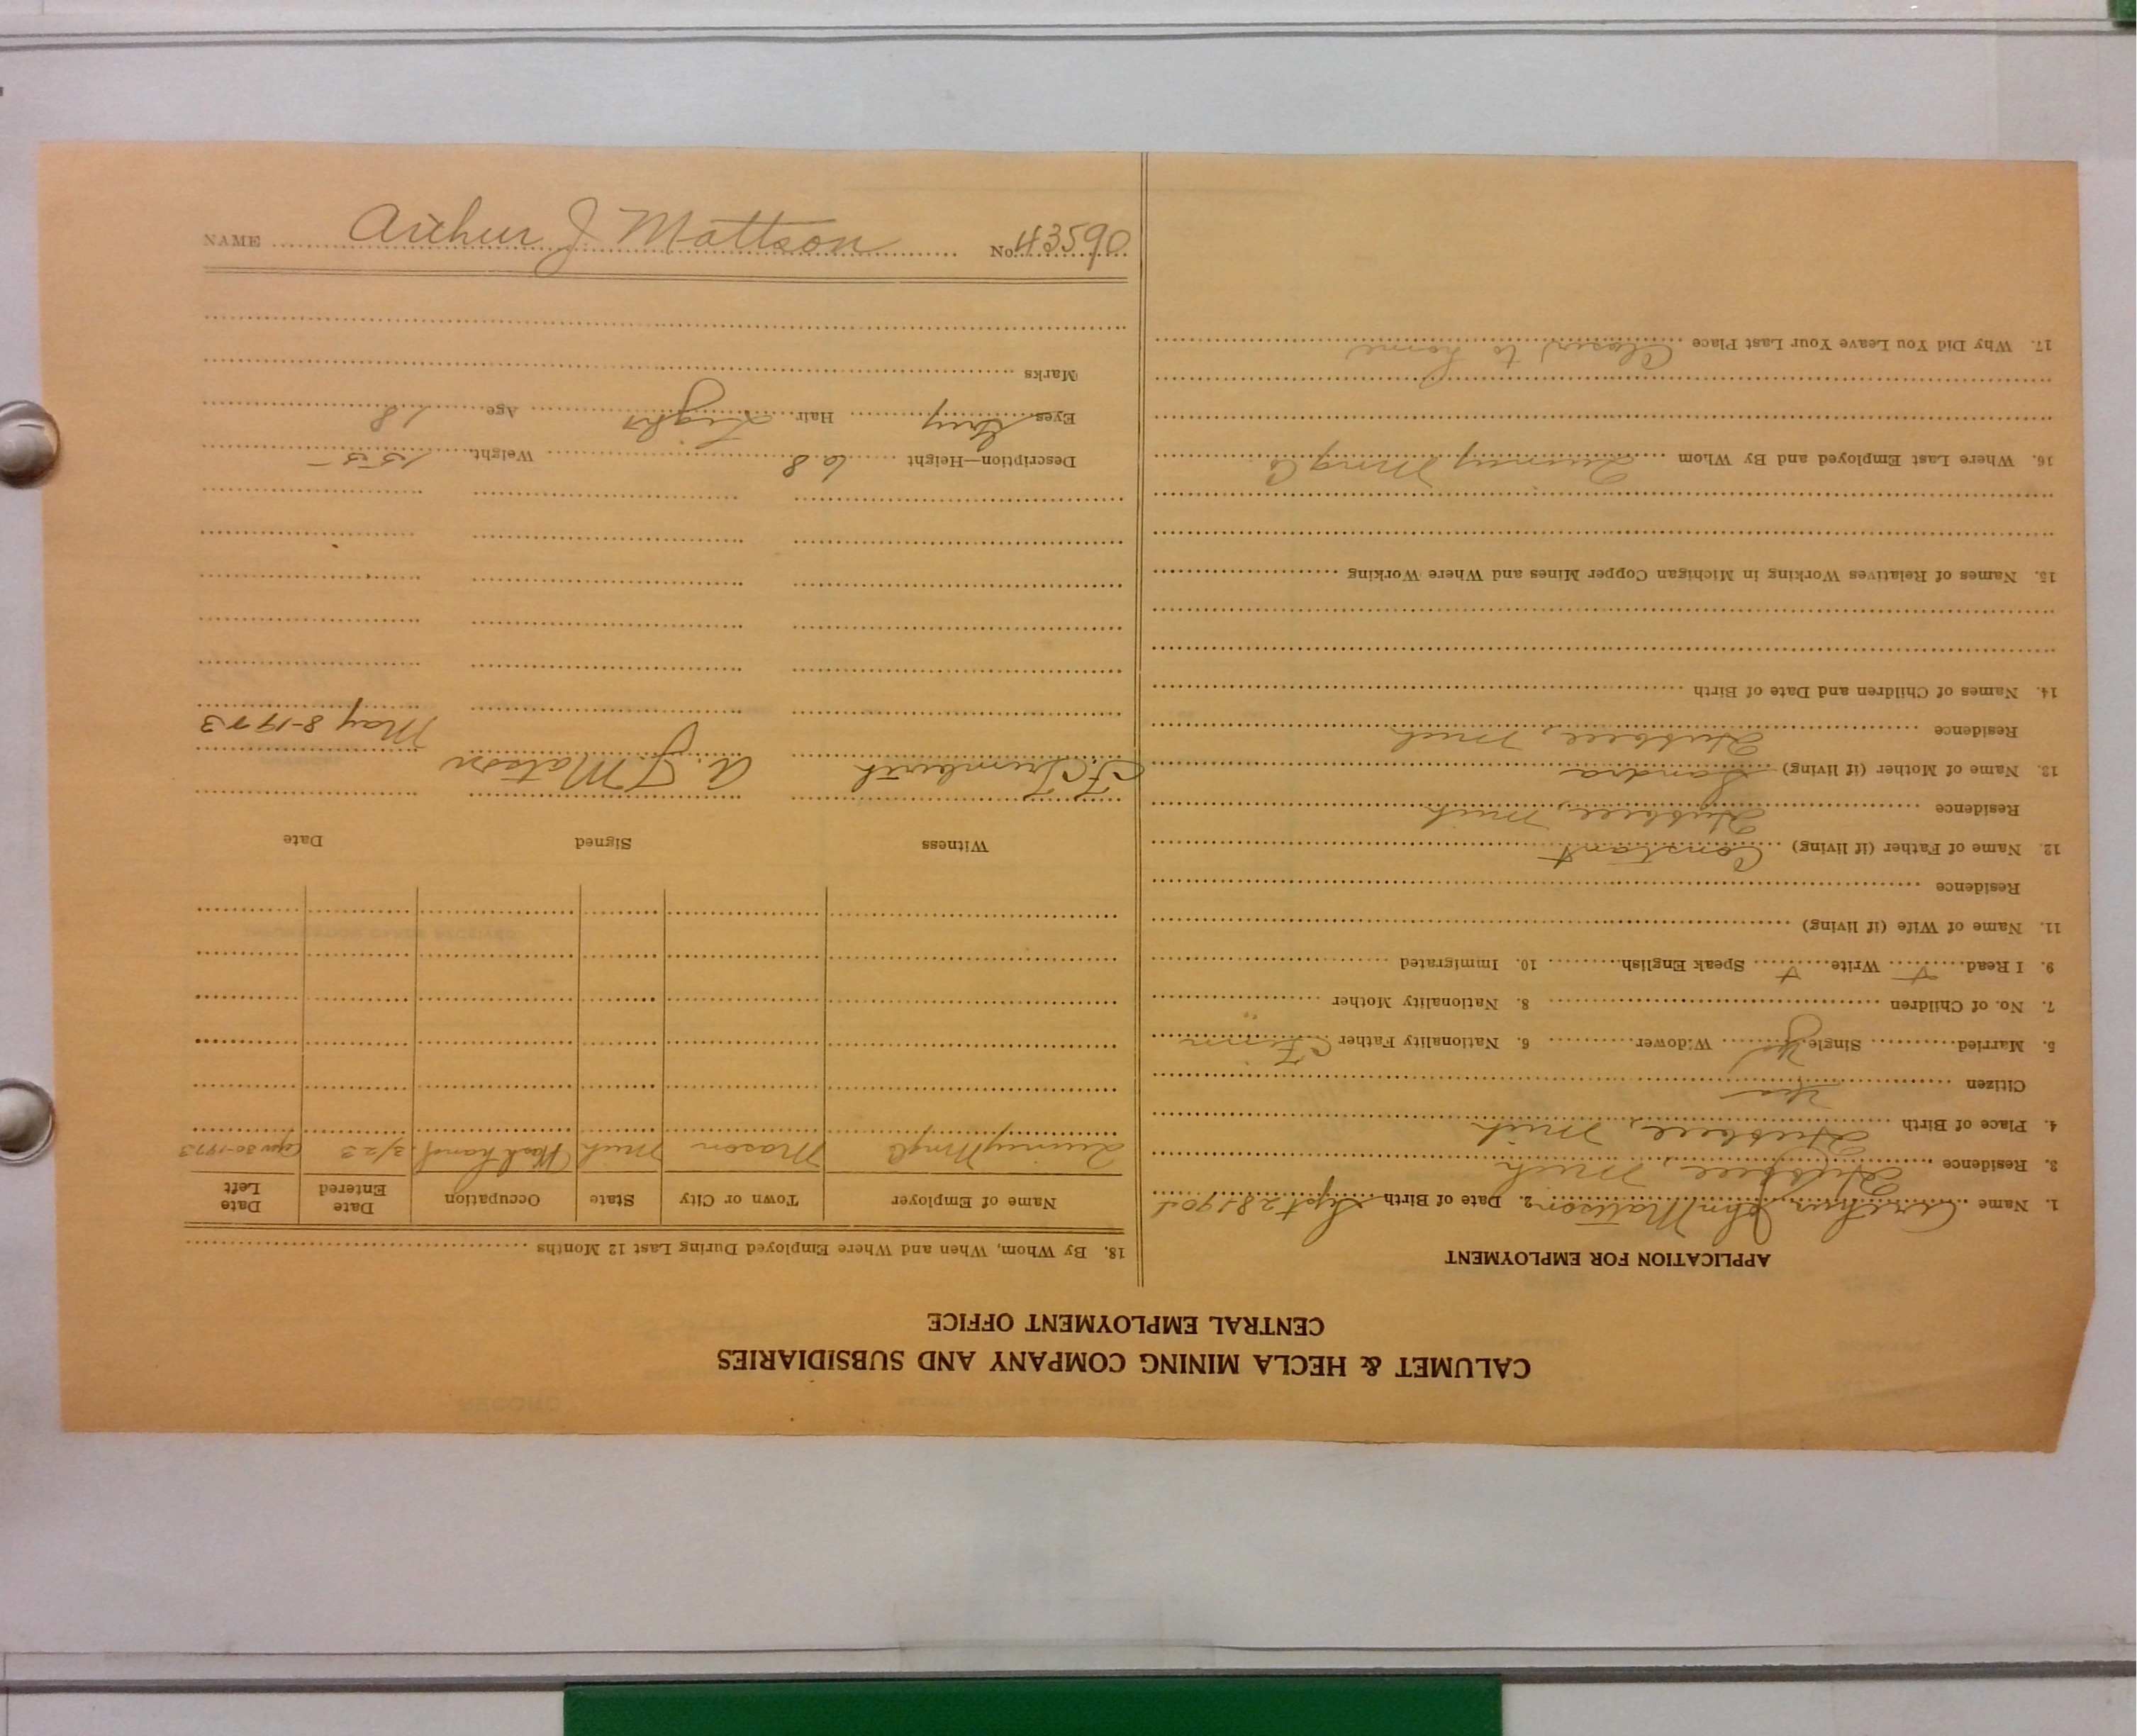 CALUMET & HECLA MINING COMPANY AND SUBSIDIARIES
CENTRAL EMPLOYMENT OFFICE
APPLICATION FOR EMPLOYMENT
1. Name Arthur John Mattson 2. Date of Birth Sept 28 1904
3. Residence Hubbell, Mich
4. Place of Birth Hubbell, Mich
Citizen Yes
5. Married Single Yes Widower 6. Nationality Father Finn
7. No. of Children 8. Nationality Mother "
9. I Read + Write + Speak English 10. Immigrated
11. Name of Wife (if living)
Residence
12. Name of Father (if living) Constant
Residence Hubbell, Mich
13. Name of Mother (if living) Sandra
Residence Hubbell, Mich
14. Names of Children and Date of Birth
15. Names of Relatives Working in Michigan Copper Mines and Where Working
16. Where Last Employed and By Whom Quincy Mng Co
17. Why Did You Leave Your Last Place Closer to home
18. By Whom, When and Where Employed During Last 12 Months
Name of Employer Town or City State Occupation Date Entered Date Left
Quincy Mng Co Mason Mich Wash hand 3/23 Apr 30-1923
Witness Signed Date
F. C. A. J. Matson May 8-1923
Description—Height 6.8 Weight 155
Eyes Grey Hair Light Age 18
Marks
NAME Arthur J Mattson No. 43590